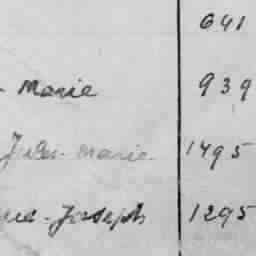 641
- Marie 939
Jules-Marie 1495
-Joseph 1295